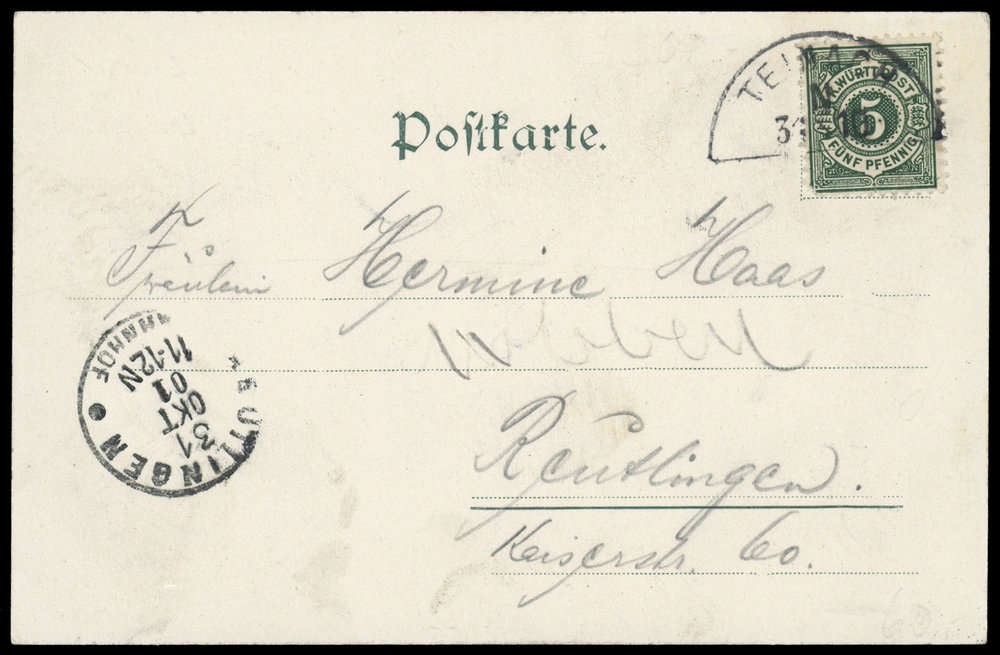 TEINACH
31 10
K. WÜRTT. POST
5
FÜNF PFENNIG
Postkarte.
Fräulein Hermine Haas
Reutlingen.
Kaiserstr. 60.
REUTLINGEN
BAHNHOF
31
OKT
01
11-12N